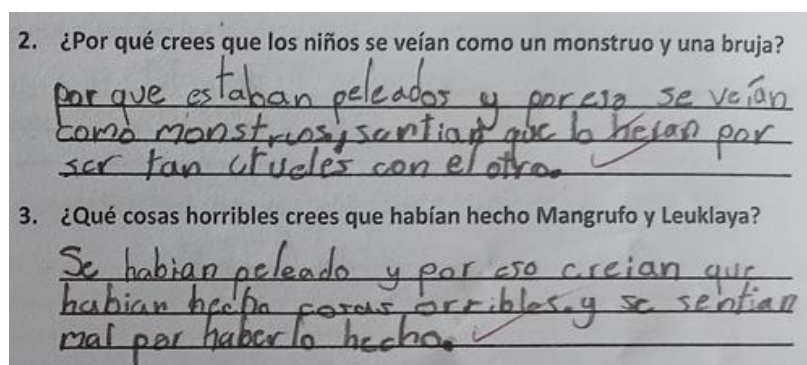 2. ¿Por qué crees que los niños se veían como un monstruo y una bruja?
por que estaban peleados y por eso se veían
como monstruos, sentian que lo heían por
ser tan crueles con el otro.
3. ¿Qué cosas horribles crees que habían hecho Mangrufo y Leuklaya?
Se habian peleado y por eso creian que
habian hecho cosas orribles y se sentian
mal por haberlo hecho.